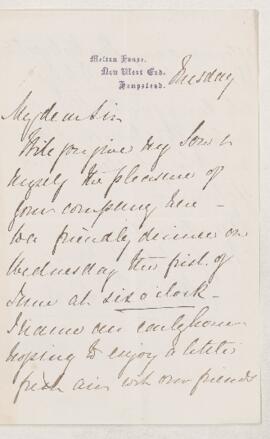 Melton House.
New West End.
Hampstead.
Tuesday
My dear Sir
Will you give my Son &
myself the pleasure of
your company here -
to a friendly dinner on
Wednesday the first of
June at six o'clock -
I name an early hour
hoping to enjoy a little
fresh air with our friends